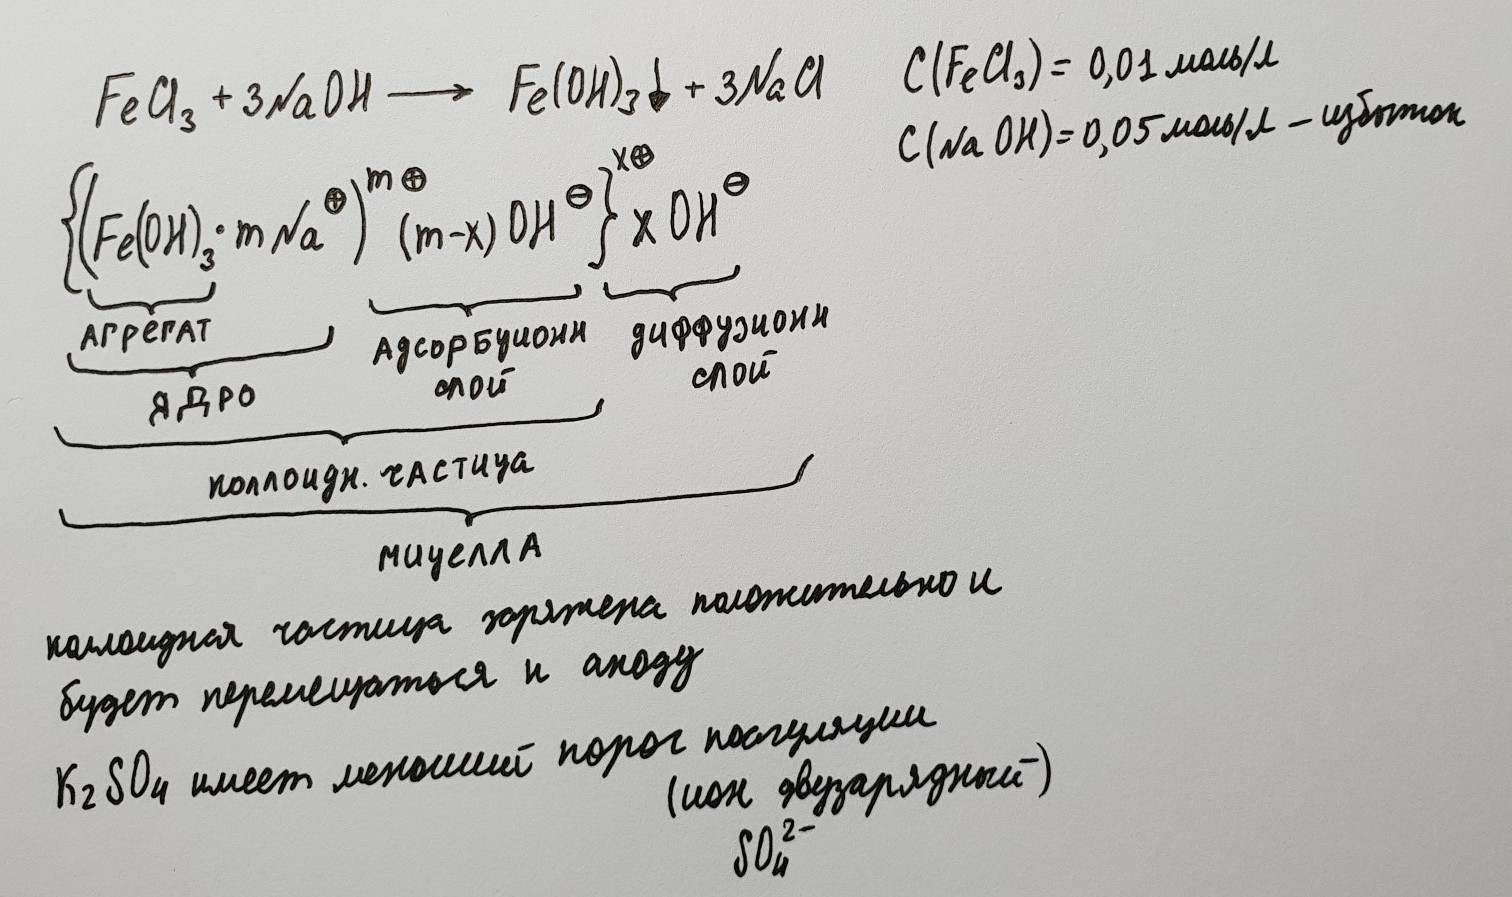 FeCl₃ + 3NaOH ⟶ Fe(OH)₃↓ + 3NaCl
C(FeCl₃) = 0,01 моль/л
C(NaOH) = 0,05 моль/л – избыток
{(Fe(OH)₃ · m Na⊕)ᵐ⊕ (m-x) OH⊖}ˣ⊕ x OH⊖
АГРЕГАТ
Адсорбционн слой
диффузионн слой
ЯДРО
коллоидн. частица
мицеллА
коллоидная частица заряжена положительно и
будет перемещаться к аноду
K₂SO₄ имеет меньший порог коагуляции
(ион двузарядный)
SO₄²⁻